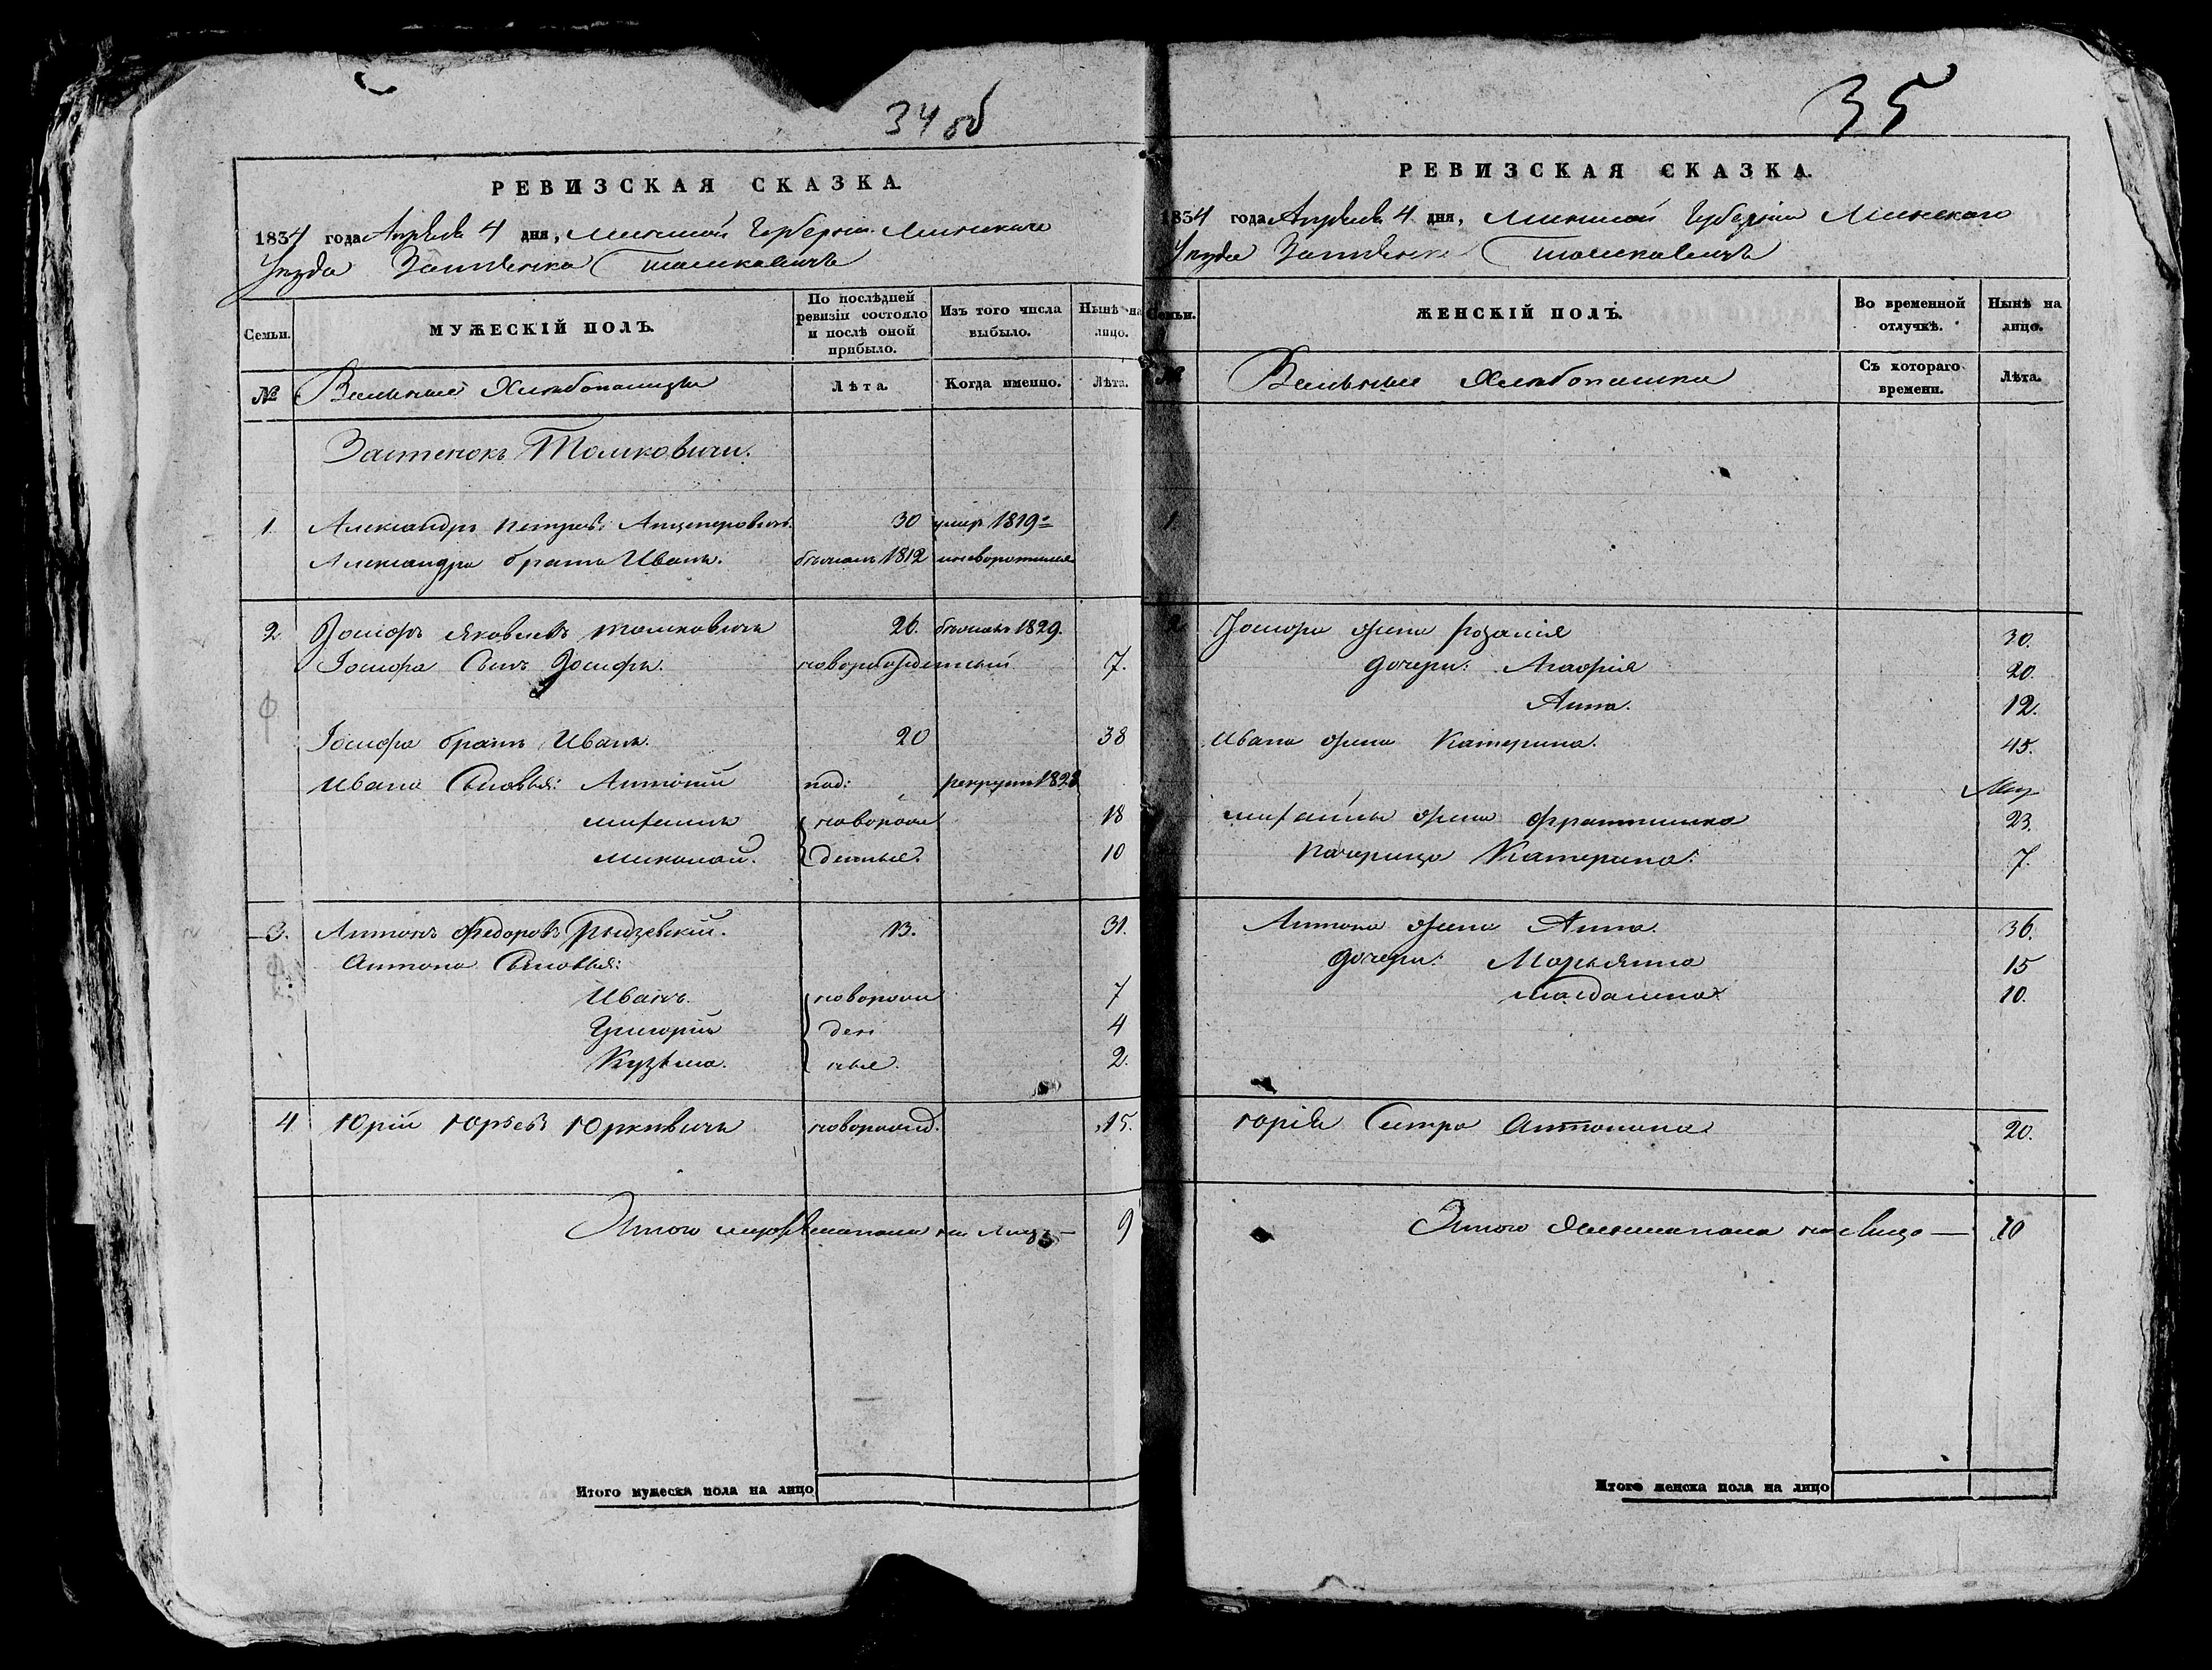 34 об
РЕВИЗСКАЯ СКАЗКА.
1834 года Апреля 4 дня, Минской Губернии Минскаго
Уезда Застенка Томковичь
Семьи.
МУЖЕСКІЙ ПОЛЪ.
По послѣдней ревизіи состояло и послѣ оной прибыло.
Изъ того числа выбыло.
Нынѣ на лицо.
№
Вольные Хлебопашцы
Лѣта.
Когда именно.
Лѣта.
Застенокъ Томковичи.
1. Александръ Петровъ 30 умер 1819
Александра братъ Иванъ. бежалъ 1812
2 Іосифъ Яковлевъ Томковичь 26. бежалъ 1829.
Іосифа Сынъ Іосифъ. новорожденный 7.
Іосифа братъ Иванъ. 20 38
Ивана Сыновья: Антоній рекрут
новорож 18
Миколай. денные. 10
3. Антонъ Федоровъ 13. 31.
Антона Сыновья:
Иванъ. новорож 7
Григорій ден 4
Кузьма. ные. 2.
4 Юрій Юрьевъ Юркевичь новорожд. 15.
Итого мужескапола на лицо — 9
Итого мужеска пола на лицо
35
РЕВИЗСКАЯ СКАЗКА.
1834 года Апреля 4 дня, Минской Губерніи Минскаго
Уезда Застенка Томковичь
Семьи.
ЖЕНСКІЙ ПОЛЪ.
Во временной отлучкѣ.
Нынѣ на лицо.
№
Вольные Хлебопашки
Съ котораго времени.
Лѣта.
1.
2 Іосифа жена Розалія 30.
дочери: Агафія 20.
Анна. 12.
Ивана жена Катерина. 45.
жена Франтишка 23.
Катерина. 7.
Антона жена Анна. 36.
дочери: Марьянна 15
Магдалена 10.
Юрія Сестра Антонина 20.
Итого женскапола на лицо — 10
Итого женска пола на лицо